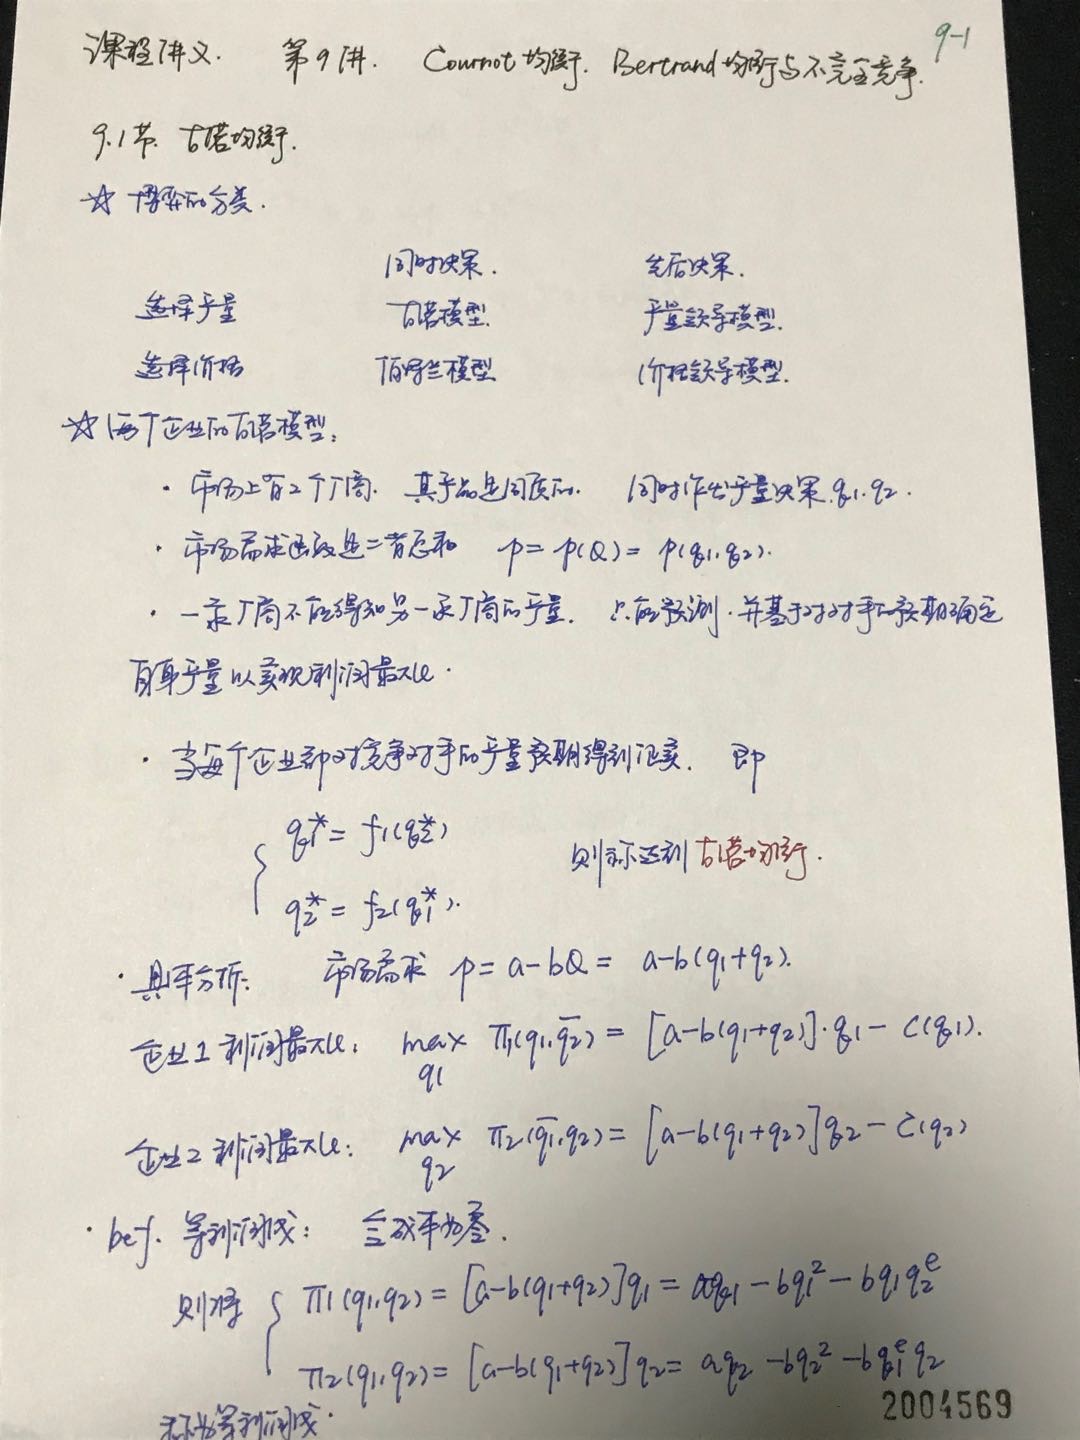 9-1
课程讲义. 第9讲. Cournot均衡. Bertrand均衡与不完全竞争.
9.1节. 古诺均衡.
☆ 博弈的分类.
同时决策. 先后决策.
选择产量 古诺模型. 产量领导模型.
选择价格 伯特兰模型 价格领导模型.
☆ 两个企业的古诺模型:
· 市场上有2个厂商. 其产品是同质的. 同时作出产量决策 q1. q2.
· 市场需求函数是二者总和 p = p(Q) = p(q1, q2).
· 一家厂商不能得知另一家厂商的产量. 只能预测. 并基于对对手的预期确定
自身产量以实现利润最大化.
· 当每个企业都对竞争对手的产量预期得到证实. 即
q1* = f1(q2*)
则称达到古诺均衡.
q2* = f2(q1*).
· 具体分析: 市场需求 p = a-bQ = a-b(q1+q2).
企业1利润最大化: max q1 π1(q1, q̄2) = [a-b(q1+q2)]·q1 - C(q1).
企业2利润最大化: max q2 π2(q̄1, q2) = [a-b(q1+q2)]q2 - C(q2)
· Def. 等利润线: 令成本为零.
则将 { π1(q1,q2) = [a-b(q1+q2)]q1 = aq1 - bq1² - bq1q2^e
π2(q1,q2) = [a-b(q1+q2)]q2 = aq2 - bq2² - bq1^e q2
称为等利润线.
2004569